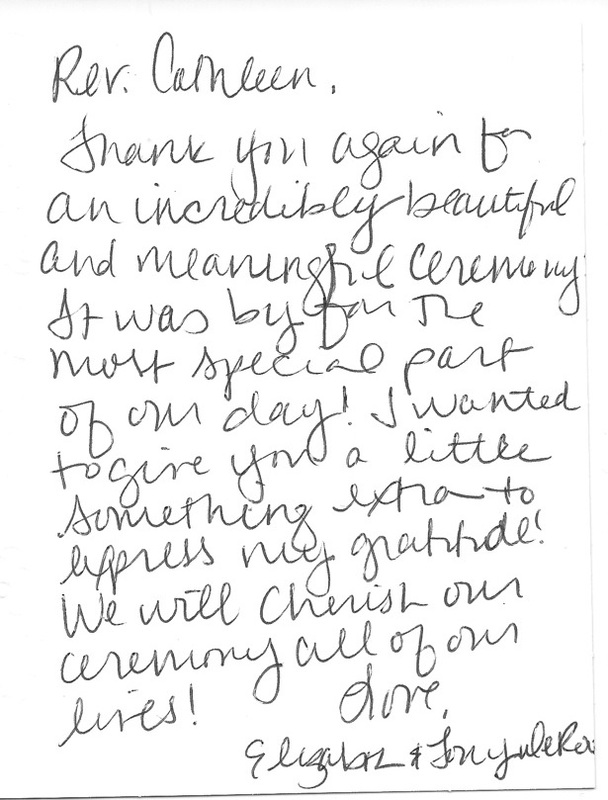 Rev. Cathleen,
Thank you again for
an incredibly beautiful
and meaningful ceremony
It was by far the
most special part
of our day! I wanted
to give you a little
something extra to
express my gratitude!
We will cherish our
ceremony all of our
lives!
Love,
Elizabeth & Tony